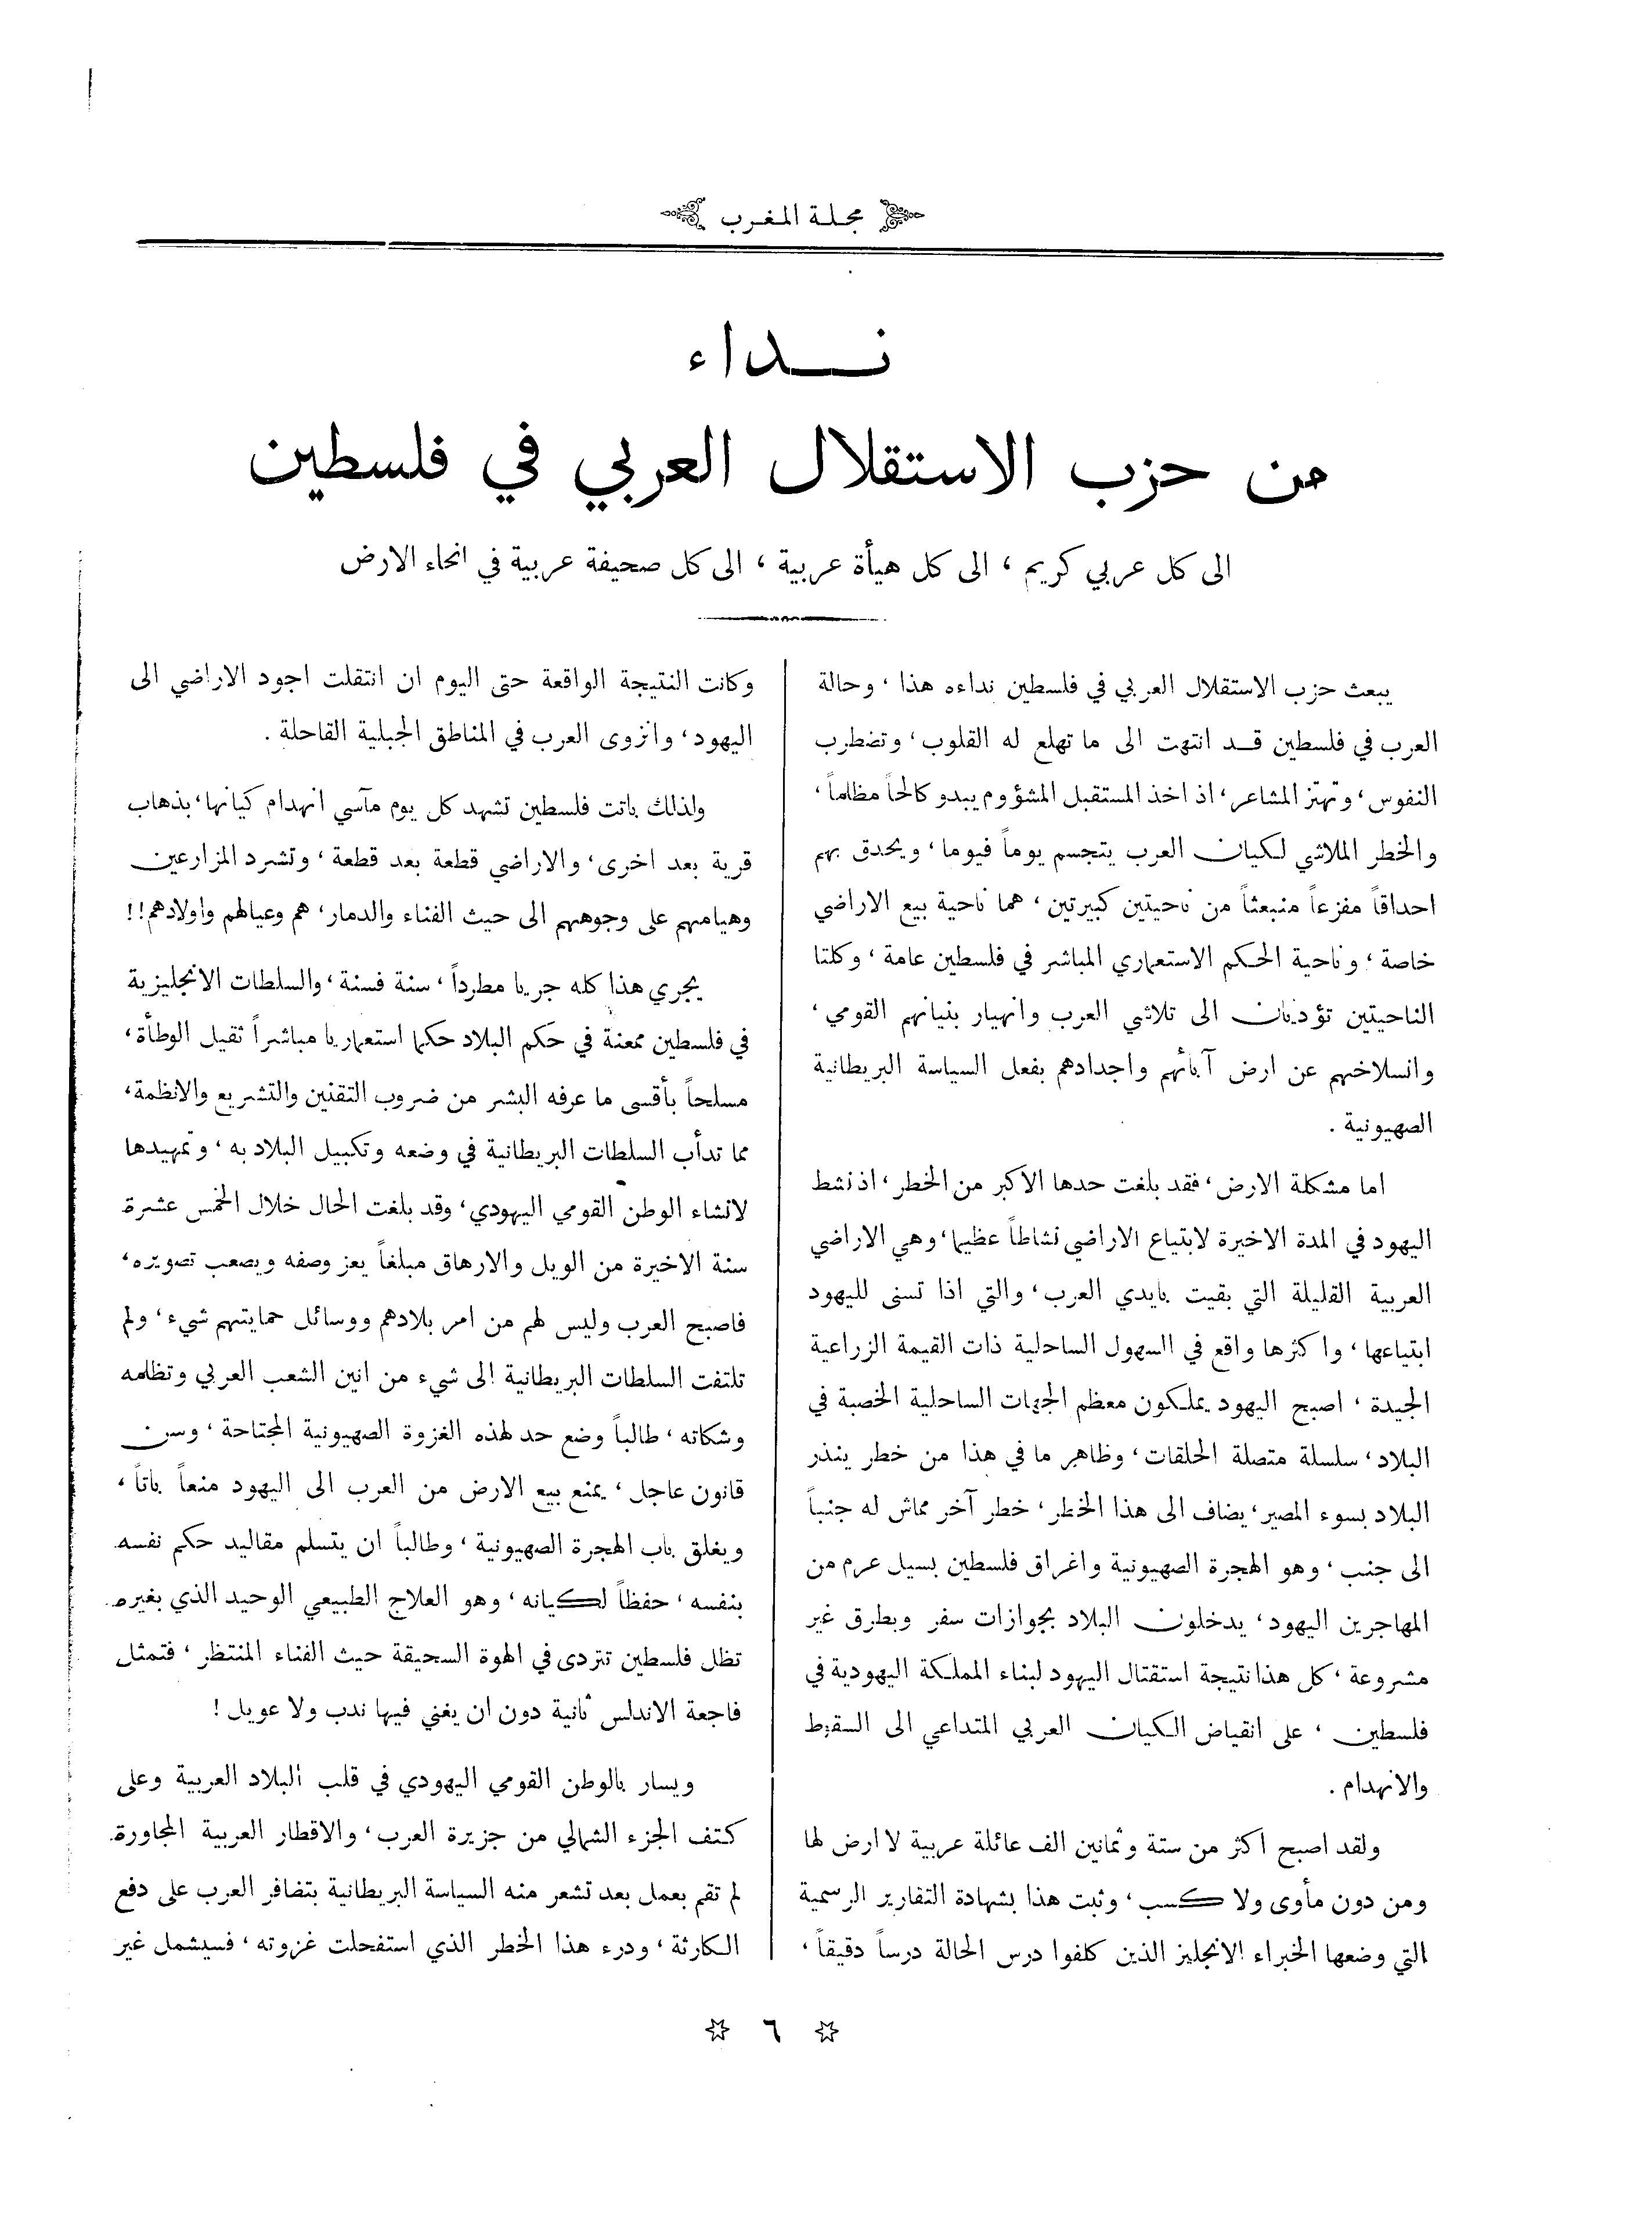 مجلة المغرب
نداء
من حزب الاستقلال العربي في فلسطين
الى كل عربي كريم، الى كل هيأة عربية، الى كل صحيفة عربية في انحاء الارض
يبعث حزب الاستقلال العربي في فلسطين نداءه هذا، وحالة
العرب في فلسطين قد انتهت الى ما تهلع له القلوب، وتضطرب
النفوس، وتهتز المشاعر، اذ اخذ المستقبل المشؤوم يبدو كالحاً مظلماً،
والخطر الملاشي لكيان العرب يتجسم يوماً فيوما، ويحدق بهم
احداقاً مفزعاً منبعثاً من ناحيتين كبيرتين، هما ناحية بيع الاراضي
خاصة، وناحية الحكم الاستعماري المباشر في فلسطين عامة، وكلتا
الناحيتين تؤديان الى تلاشي العرب وانهيار بنيانهم القومي،
وانسلاخهم عن ارض آبائهم واجدادهم بفعل السياسة البريطانية
الصهيونية.
اما مشكلة الارض، فقد بلغت حدها الاكبر من الخطر، اذ نشط
اليهود في المدة الاخيرة لابتياع الاراضي نشاطاً عظيما، وهي الاراضي
العربية القليلة التي بقيت بايدي العرب، والتي اذا تسنى لليهود
ابتياعها، واكثرها واقع في السهول الساحلية ذات القيمة الزراعية
الجيدة، اصبح اليهود يملكون معظم الجهات الساحلية الخصبة في
البلاد، سلسلة متصلة الحلقات، وظاهر ما في هذا من خطر ينذر
البلاد بسوء المصير، يضاف الى هذا الخطر، خطر آخر مماش له جنباً
الى جنب، وهو الهجرة الصهيونية واغراق فلسطين بسيل عرم من
المهاجرين اليهود، يدخلون البلاد بجوازات سفر وبطرق غير
مشروعة، كل هذا نتيجة استقتال اليهود لبناء المملكة اليهودية في
فلسطين، على انقياض الكيان العربي المتداعي الى السقوط
والانهدام.
ولقد اصبح اكثر من ستة وثمانين الف عائلة عربية لا ارض لها
ومن دون مأوى ولا كسب، وثبت هذا بشهادة التقارير الرسمية
التي وضعها الخبراء الانجليز الذين كلفوا درس الحالة درساً دقيقاً،
وكانت النتيجة الواقعة حتى اليوم ان انتقلت اجود الاراضي الى
اليهود، وانزوى العرب في المناطق الجبلية القاحلة.
ولذلك باتت فلسطين تشهد كل يوم مآسي انهدام كيانها، بذهاب
قرية بعد اخرى، والاراضي قطعة بعد قطعة، وتشرد المزارعين
وهيامهم على وجوههم الى حيث الفناء والدمار، هم وعيالهم واولادهم!!
يجري هذا كله جريا مطرداً، سنة فسنة، والسلطات الانجليزية
في فلسطين ممعنة في حكم البلاد حكما استعماريا مباشراً ثقيل الوطأة،
مسلحاً بأقسى ما عرفه البشر من ضروب التقنين والتشريع والانظمة،
مما تدأب السلطات البريطانية في وضعه وتكبيل البلاد به، وتمهيدها
لانشاء الوطن القومي اليهودي، وقد بلغت الحال خلال الخمس عشرة
سنة الاخيرة من الويل والارهاق مبلغاً يعز وصفه ويصعب تصويره،
فاصبح العرب وليس لهم من امر بلادهم ووسائل حمايتهم شيء، ولم
تلتفت السلطات البريطانية الى شيء من انين الشعب العربي وتظلمه
وشكاته، طالباً وضع حد لهذه الغزوة الصهيونية المجتاحة، وسن
قانون عاجل، يمنع بيع الارض من العرب الى اليهود منعاً باتاً،
ويغلق باب الهجرة الصهيونية، وطالباً ان يتسلم مقاليد حكم نفسه
بنفسه، حفظاً لكيانه، وهو العلاج الطبيعي الوحيد الذي بغيره
تظل فلسطين تتردى في الهوة السحيقة حيث الفناء المنتظر، فتمثل
فاجعة الاندلس ثانية دون ان يغني فيها ندب ولا عويل!
ويسار بالوطن القومي اليهودي في قلب البلاد العربية وعلى
كتف الجزء الشمالي من جزيرة العرب، والاقطار العربية المجاورة
لم تقم بعمل بعد تشعر منه السياسة البريطانية بتضافر العرب على دفع
الكارثة، ودرء هذا الخطر الذي استفحلت غزوته، فسيشمل غير
٦